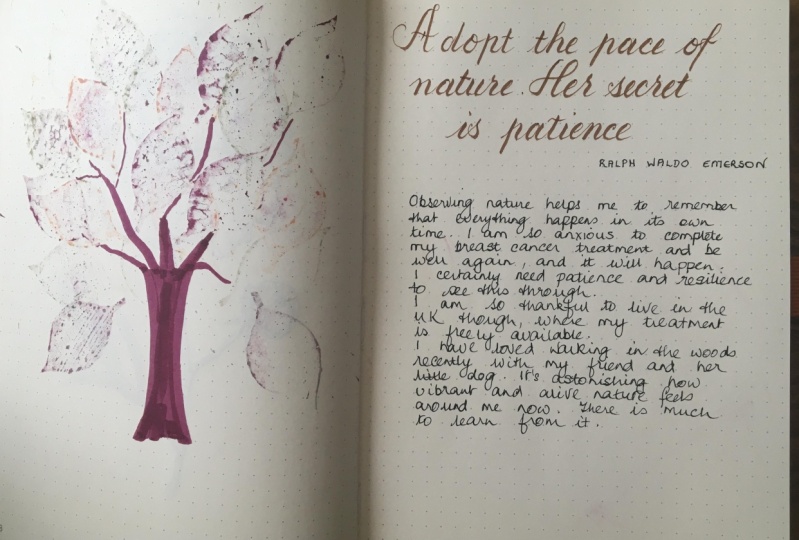 Adopt the pace of
nature. Her secret
is patience
RALPH WALDO EMERSON
Observing nature helps me to remember
that everything happens in its own
time. I am so anxious to complete
my breast cancer treatment and be
well again, and it will happen.
I certainly need patience and resilience
to see this through.
I am so thankful to live in the
UK though, where my treatment
is freely available.
I have loved walking in the woods
recently with my friend and her
little dog. It's astonishing how
vibrant and alive nature feels
around me now. There is much
to learn from it.